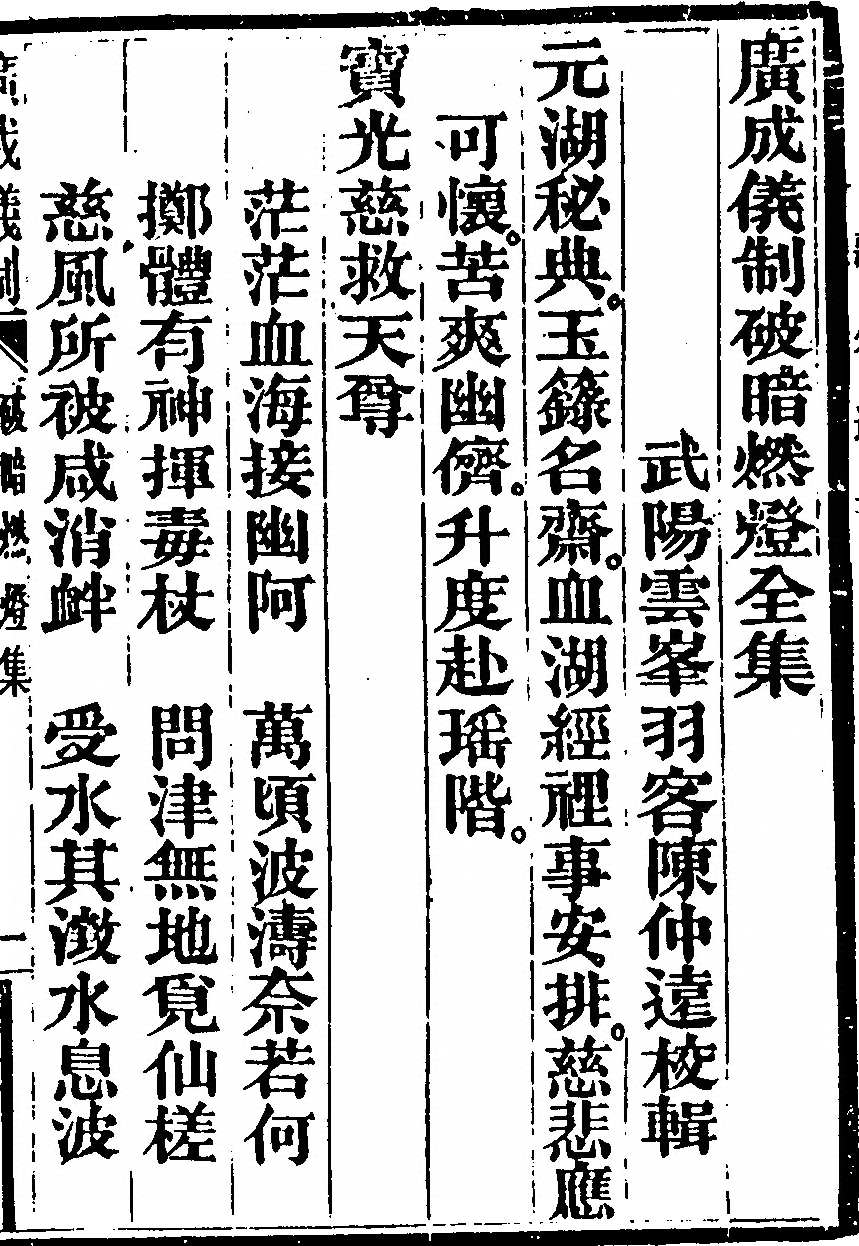 廣成儀制破暗燃燈全集
武陽雲峯羽客陳仲遠校輯
元湖秘典。玉籙名齋。血湖經裡事安排。慈悲應
可懷。苦爽幽儕。升度赴瑤階。
寶光慈救天尊
茫茫血海接幽阿　萬頃波濤奈若何
擲體有神揮毒杖　問津無地覓仙槎
慈風所被咸消衅　受水其澂水息波
廣成儀制　破暗燃燈集　一